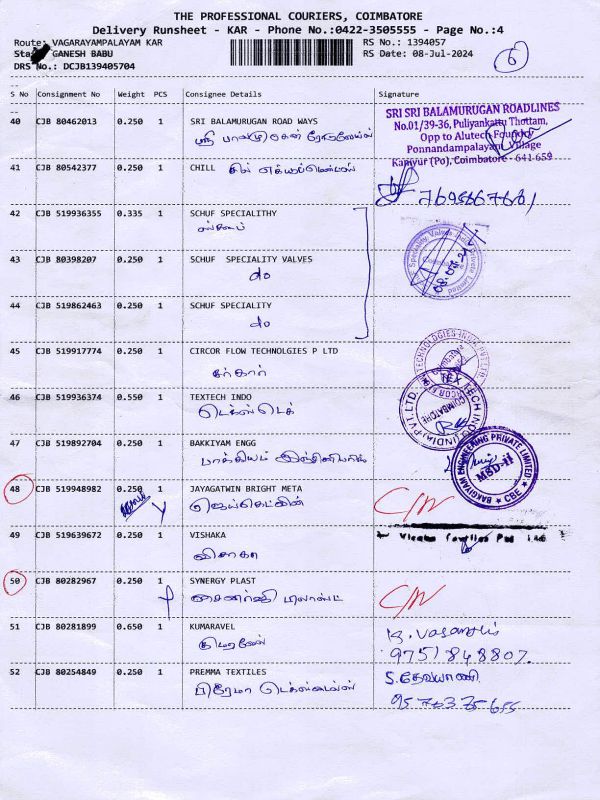 THE PROFESSIONAL COURIERS, COIMBATORE
Delivery Runsheet - KAR - Phone No.:0422-3505555 - Page No.:4
Route: VAGARAYAMPALAYAM KAR
GANESH BABU
DRS No.: DCJB139405704
RS No.: 1394057
RS Date: 08-Jul-2024
6
S No Consignment No Weight PCS Consignee Details Signature
40 CJB 80462013 0.250 1 SRI BALAMURUGAN ROAD WAYS
SRI SRI BALAMURUGAN ROADLINES
No.01/39-36, Puliyankattu Thottam,
Opp to Alutech Foundry
Ponnandampalayam Village
Kaniyur (Po), Coimbatore - 641 659
41 CJB 80542377 0.250 1 CHILL
42 CJB 519936355 0.335 1 SCHUF SPECIALITHY
43 CJB 80398207 0.250 1 SCHUF SPECIALITY VALVES
do
44 CJB 519862463 0.250 1 SCHUF SPECIALITY
do
45 CJB 519917774 0.250 1 CIRCOR FLOW TECHNOLGIES P LTD
46 CJB 519936374 0.550 1 TEXTECH INDO
டெக்ஸ்டெக்
COIMBATORE
47 CJB 519892704 0.250 1 BAKKIYAM ENGG
பாக்கியம் இன்ஜினியரிங்
BAKGIYAM ENGINEERING PRIVATE LIMITED
MSD-II
CBE
48 CJB 519948982 0.250 1 JAYAGATWIN BRIGHT META
C/N
49 CJB 519639672 0.250 1 VISHAKA
விசாகா
50 CJB 80282967 0.250 1 SYNERGY PLAST
சைனர்ஜி பிலாஸ்ட்
C/N
51 CJB 80281899 0.650 1 KUMARAVEL
குமரவேல்
9751848807.
52 CJB 80254849 0.250 1 PREMMA TEXTILES
பிரேமா டெக்ஸ்டைல்ஸ்
S.தேவயாணி